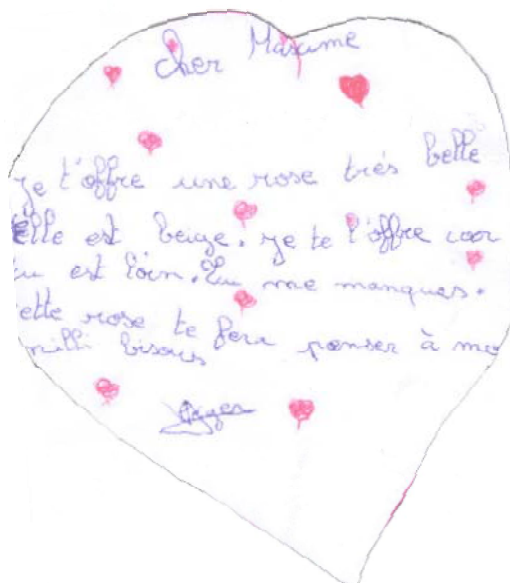 cher Maxime
je t'offre une rose trés belle
Elle est beige. je te l'offre car
tu est loin. Tu me manques.
cette rose te fera penser à mo
milli bisous